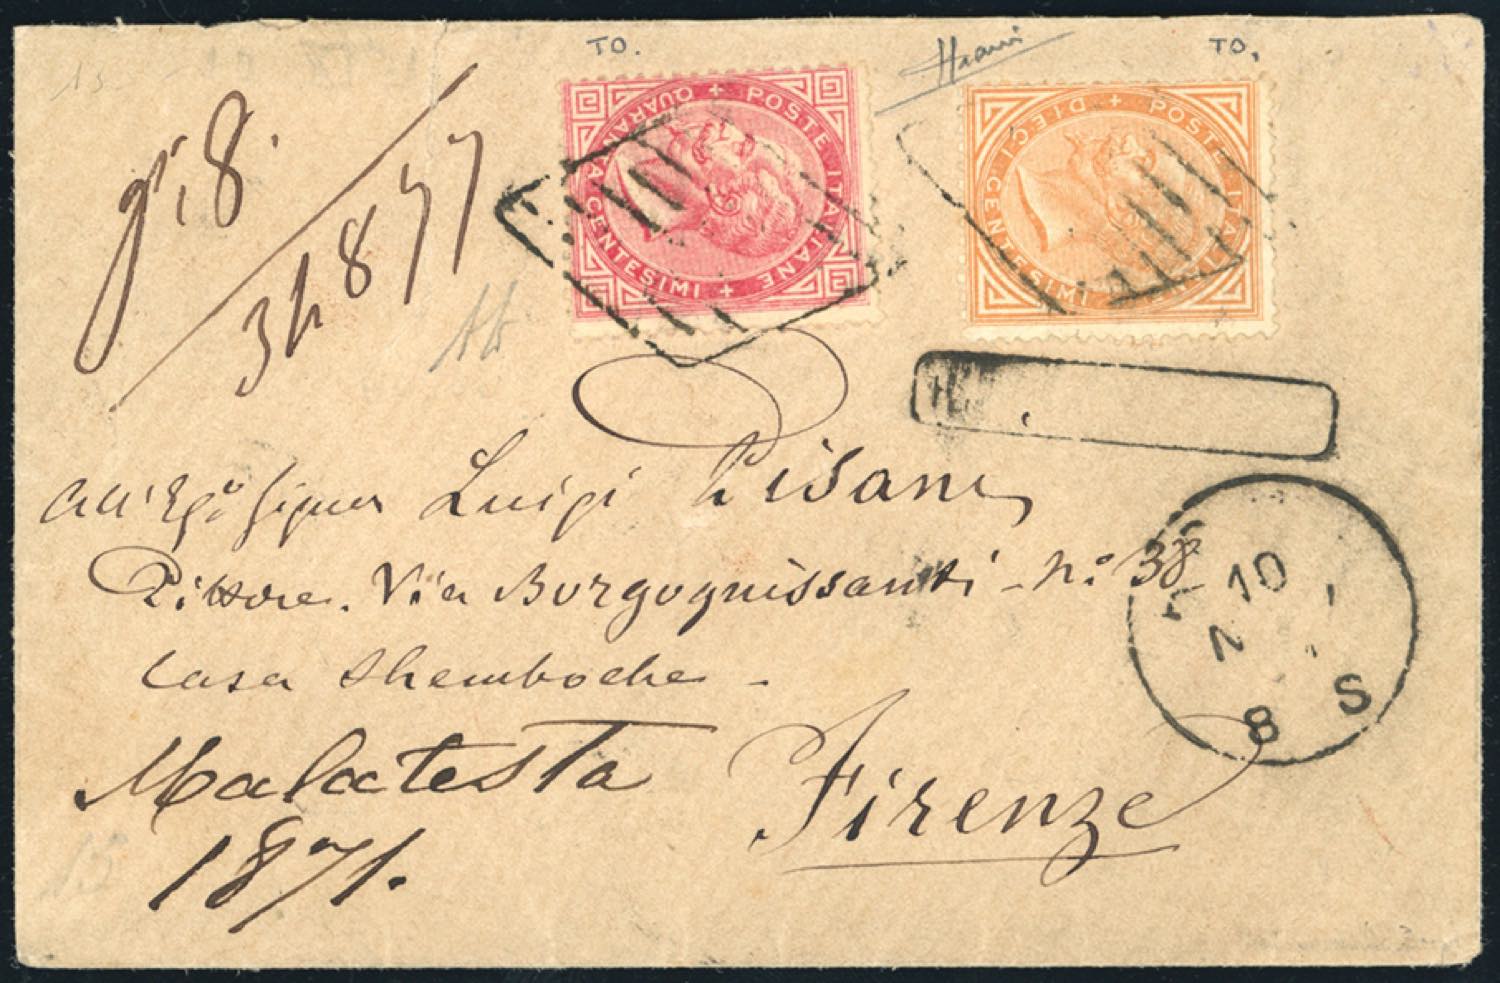 TO.
TO.
15
POSTE ITALIANE + QUARANTA CENTESIMI +
POSTE ITALIANE + DIECI CENTESIMI
gr: 8.
34877
Luigi Pisani
Pittore. Via Borgognissanti - N.º 38
Casa Shemboche -
Malatesta
Firenze
1871.
10
8 S
15